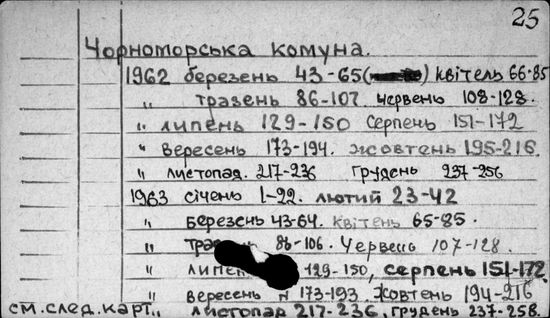 25
Чорноморська комуна.
1962 березень 43-65( ) квітень 66-85
" травень 86-107. червень 108-128.
" липень 129-150 серпень 151-172
" вересень 173-194. жовтень 195-216.
" листопад. 217-236 грудень 237-256
1963 січень 1-22. лютий 23-42
" березень 43-64. квітень 65-85.
" 86-106. Червень 107-128.
" 129-150, серпень 151-172.
" вересень 173-193 жовтень 194-216
см. след. карт. " листопад 217-236, грудень 237-258.